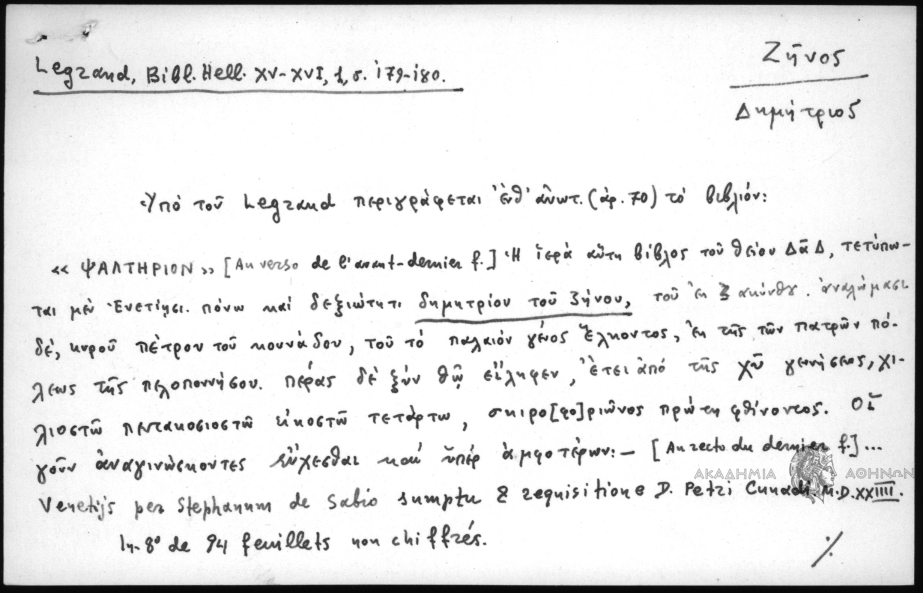 Legrand, Bibl. Hell. XV-XVI, 1, σ. 179-180.
Ζῆνος
Δημήτριος
Ὑπὸ τοῦ Legrand περιγράφεται ἐνθ' ἀνωτ. (ἀρ. 70) τὸ βιβλιόν:
« ΨΑΛΤΗΡΙΟΝ » [Au verso de l'avant-dernier f.] Ἡ ἱερὰ αὕτη βίβλος τοῦ θείου Δᾱδ, τετύπω-
ται μὲν Ἐνετίησι. πόνω καὶ δεξιώτητι δημητρίου τοῦ ζήνου, τοῦ ἐκ ζακύνθου. ἀναλώμασι
δὲ, κυροῦ πέτρου τοῦ κουνάδου, τοῦ τὸ παλαιὸν γένος ἕλκοντος, ἐκ τῆς τῶν πατρῶν πό-
λεως τῆς πελοποννήσου. πέρας δὲ ξὺν θῶ εἴληφεν, ἔτει ἀπὸ τῆς χῦ γεννήσεως, χι-
λιοστῶ πεντακοσιοστῶ εἰκοστῶ τετάρτω, σκιρο[φο]ριῶνος πρώτη φθίνοντος. Οἱ
γοῦν ἀναγινώσκοντες εὔχεσθαι καὶ ὑπὲρ ἀμφοτέρων:— [Au recto du dernier f.]...
Venetijs per Stephanum de Sabio sumptu & requisitione D. Petri Cunadi M.D.XXIIII.
In-8° de 94 feuillets non chiffrés.
./.
ΑΚΑΔΗΜΙΑ ΑΘΗΝΩΝ